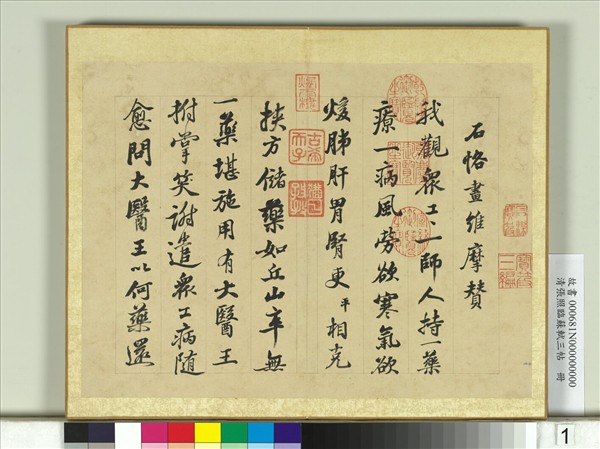 石恪畫維摩贊
我觀衆工〻一師人持一藥
療一病風勞欲寒氣欲
煖肺肝胃腎更平相克
挾方儲藥如丘山卒無
一藥堪施用有大醫王
拊掌笑謝遣衆工病隨
愈問大醫王以何藥還
古希天子
寶笈三編
故書 000681N000000000
清張照臨蘇軾三帖 冊
1